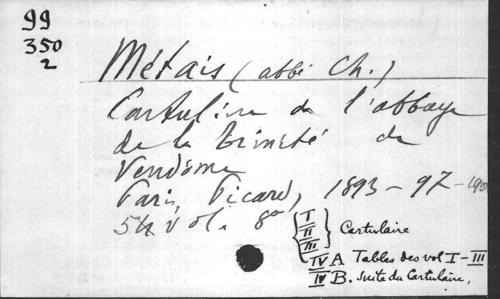 99
350
2
Métais (abbé Ch.)
Cartulaire de l'abbaye
de la Trinité de
Vendôme
Paris, Picard, 1893-97-190
5 vol. 8°
I
II
III
Cartulaire
IV A Tables des vol I-III
IV B. Suite du Cartulaire,